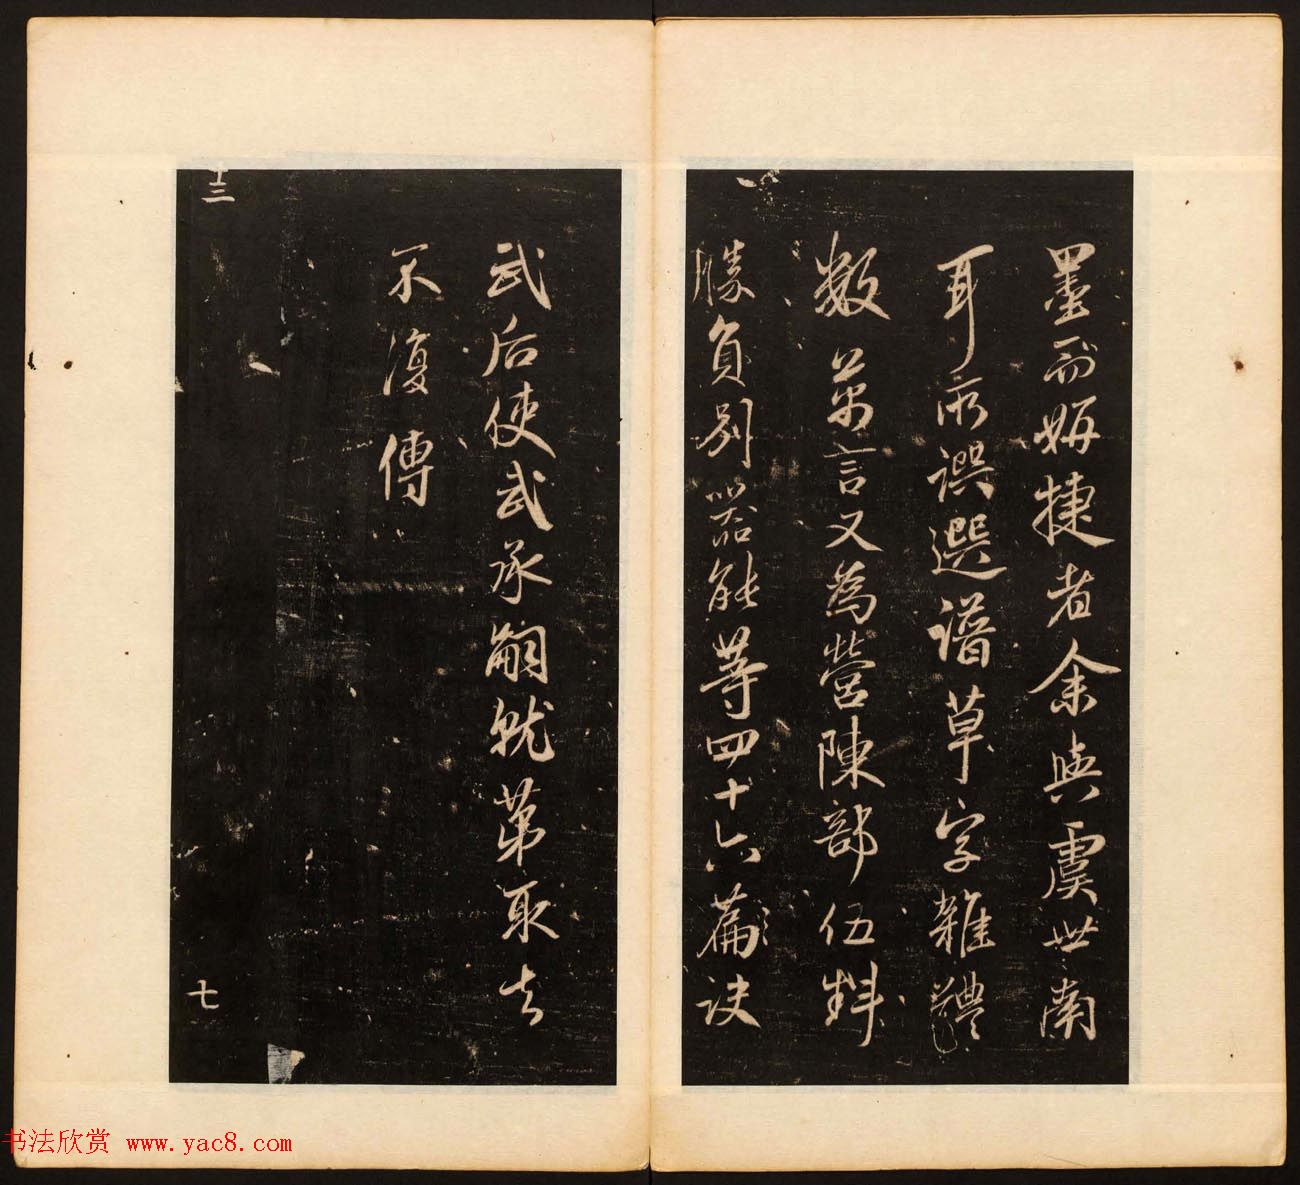 墨而妍捷者余與虞世南
耳所譔選譜草字雜體
數萬言又為營陳部伍料
勝負别器能等四十六篇訣
武后使武承嗣就第取去
不復傳
十三
七
书法欣赏 www.yac8.com